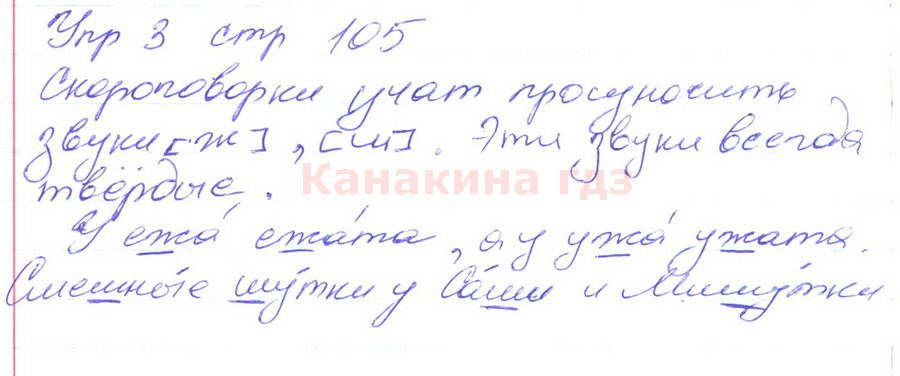 Упр 3 стр 105
Скороговорки учат произносить
звуки [ж], [ш]. Эти звуки всегда
твёрдые.
Канакина гдз
У ежа́ ежа́та, а у ужа́ ужата.
Смешны́е шу́тки у Са́ши и Мишу́тки